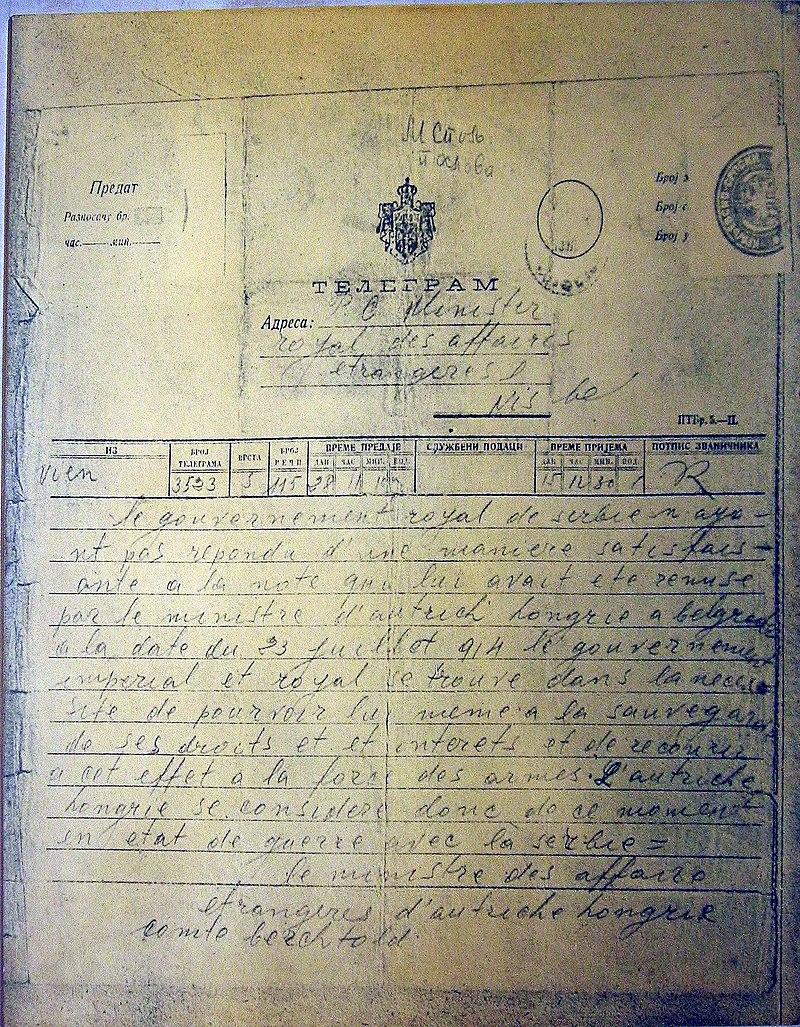 М Стојь.
послова
Предат
Разносачу бр.
час.—— мин. ——
Број
Број
Број
ТЕЛЕГРАМ
Адреса: Minister
royal des affaires
etrangeres
Nis be
ПТБр. 5.—П.
ИЗ БРОЈ ТЕЛЕГРАМА ВРСТА БРОЈ РЕЧИ ВРЕМЕ ПРЕДАЈЕ СЛУЖБЕНИ ПОДАЦИ ВРЕМЕ ПРИЈЕМА ПОТПИС ЗВАНИЧНИКА
ДАН ЧАС МИН. ПОД. ДАН ЧАС МИН. ПОД.
vien 3523 5 115 28 11 15 12 30 R
le gouvernement royal de serbie n aya-
nt pas repondu d'une maniere satisfais-
ante a la note qui lui avait ete remise
par le ministre d'autrich hongrie a belgrade
a la date du 23 juillet 914 le gouvernement
imperial et royal se trouve dans la neces-
site de pourvoir lui meme a la sauvegarde
de ses droits et et interets et de recourir
a cet effet a la force des armes. L'autriche
hongrie se considere donc de ce moment
en etat de guerre avec la serbie =
le ministre des affaire
etrangeres d'autriche hongrie
comte berchtold